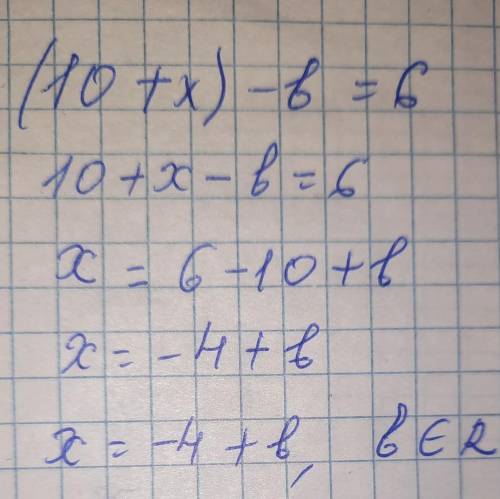 (10+x)-b=6
10+x-b=6
x=6-10+b
x=-4+b
x=-4+b, b∈R